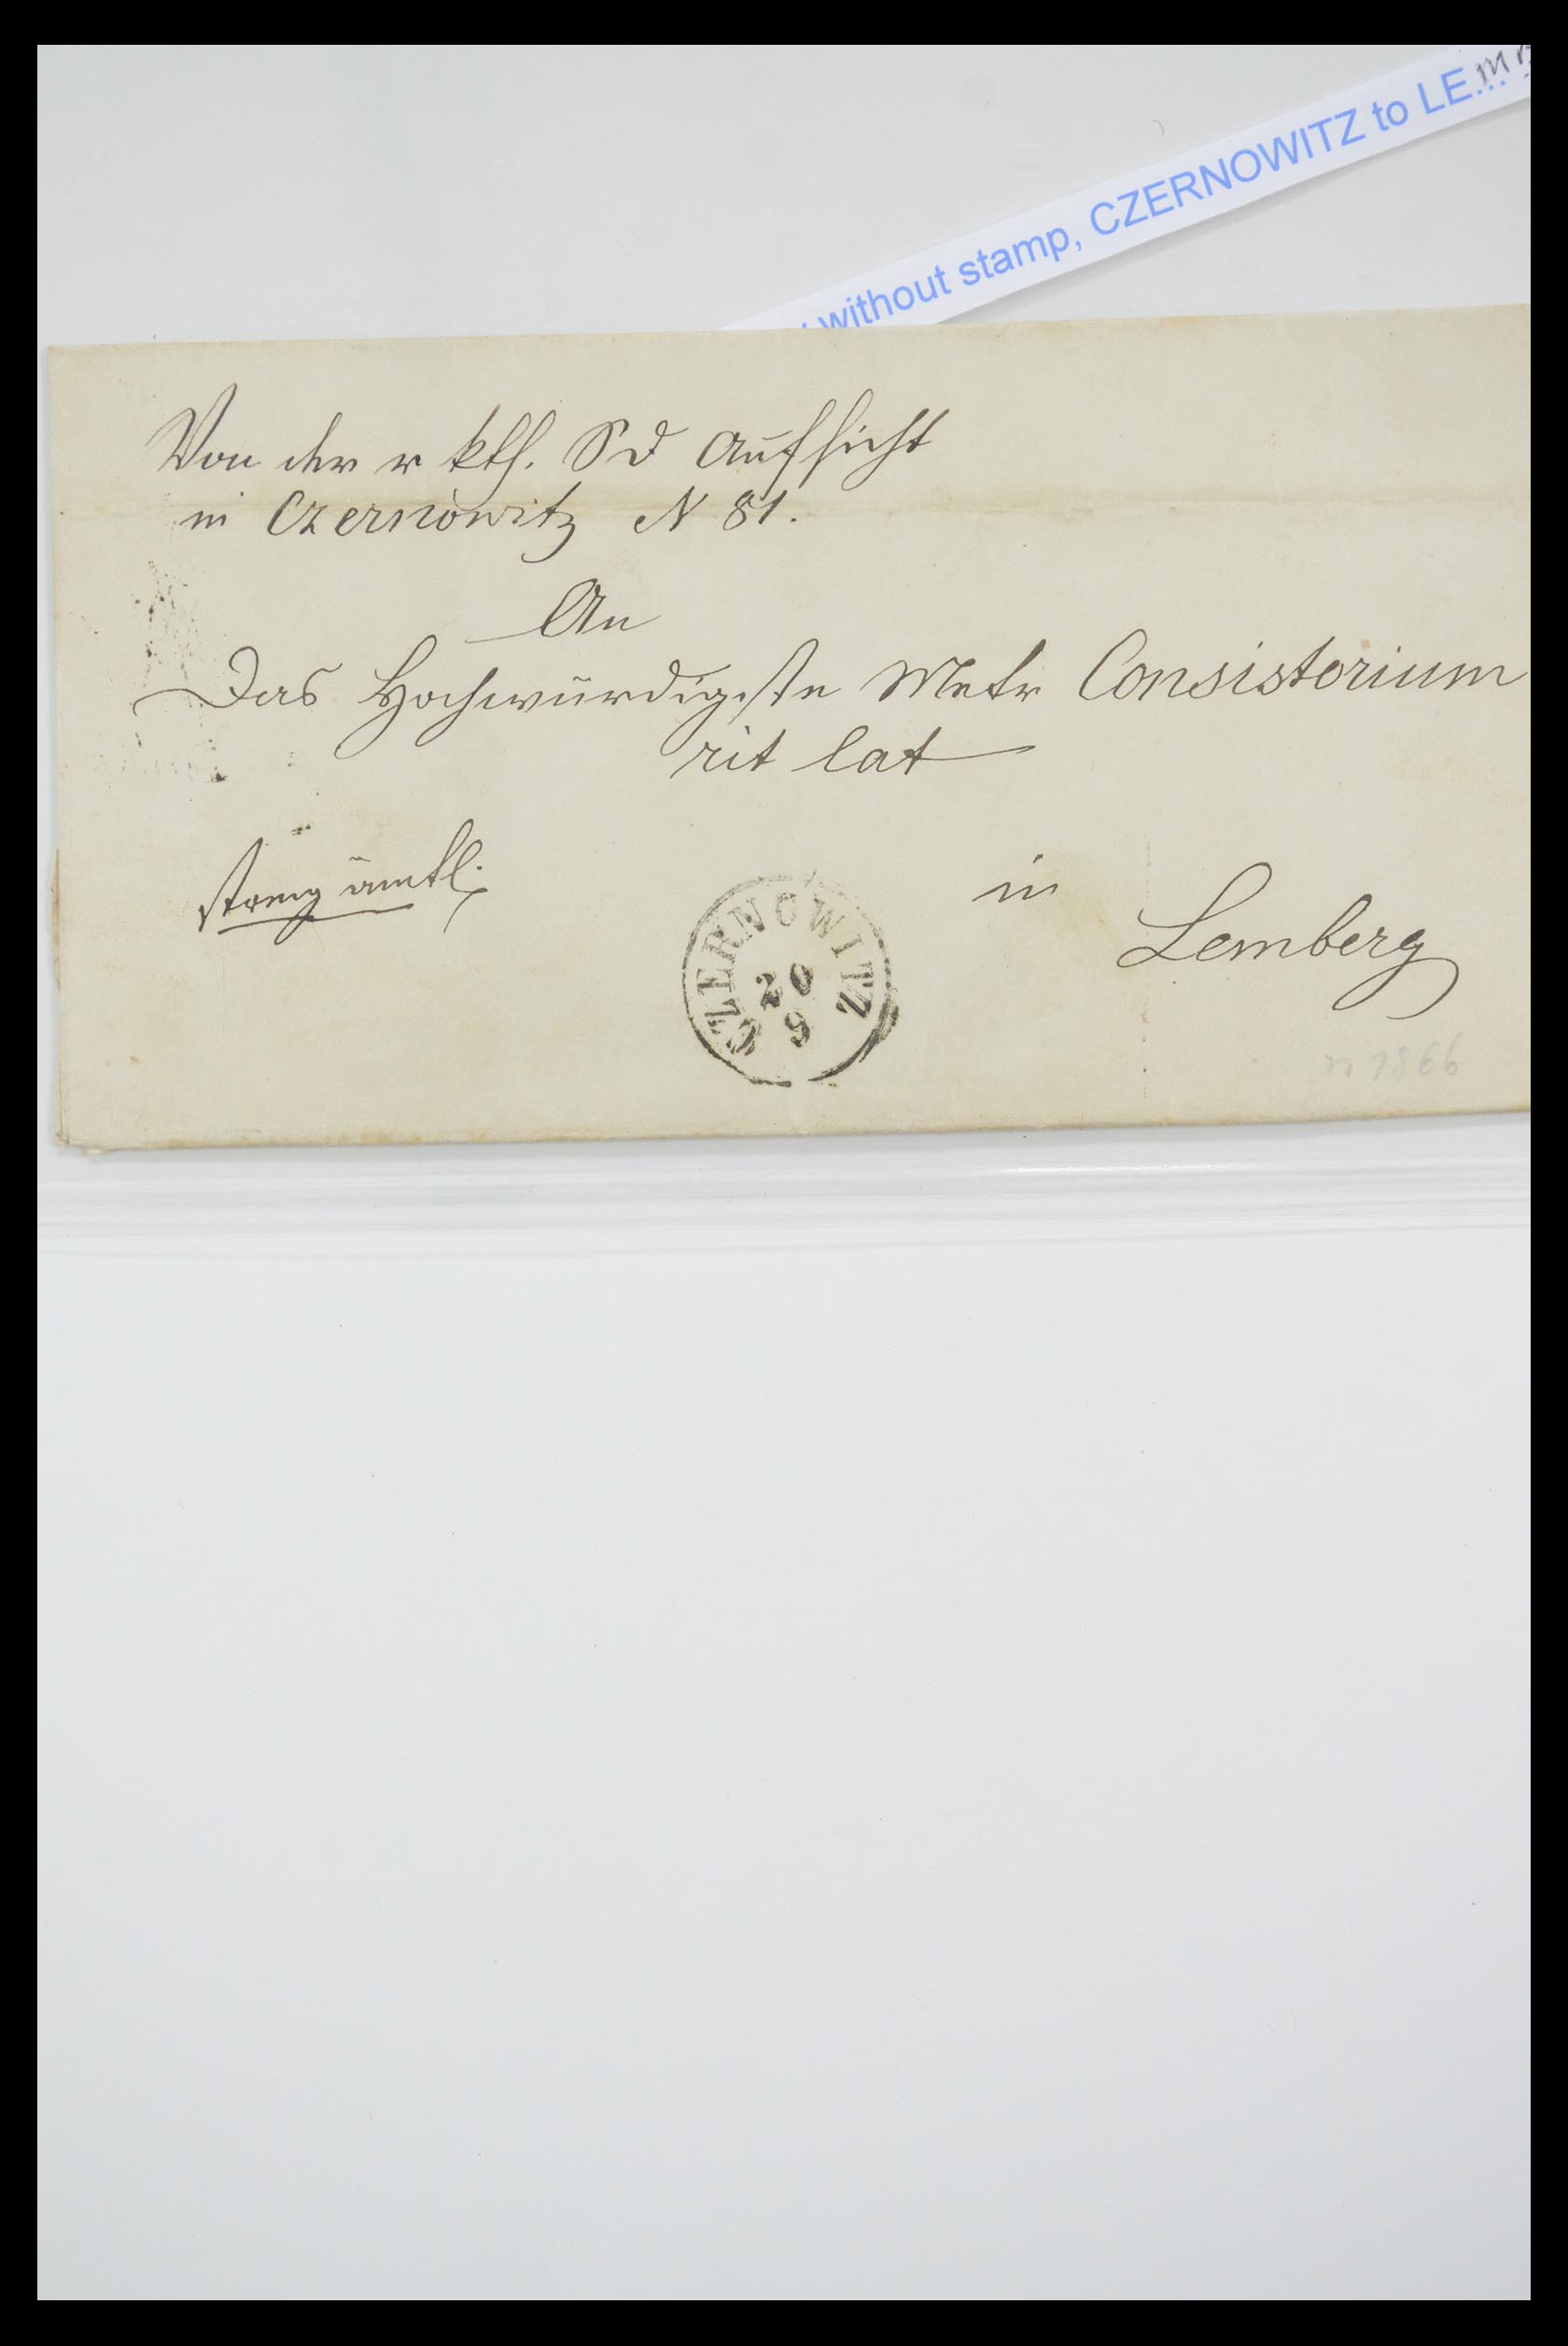 without stamp, CZERNOWITZ to LE...
Von der r kth. Sd Aufsicht
in Czernowitz N 81.
An
Das Hochwürdigste Metr Consistorium
rit lat
streng ämtl.
in
Lemberg
CZERNOWITZ
20
9
1866